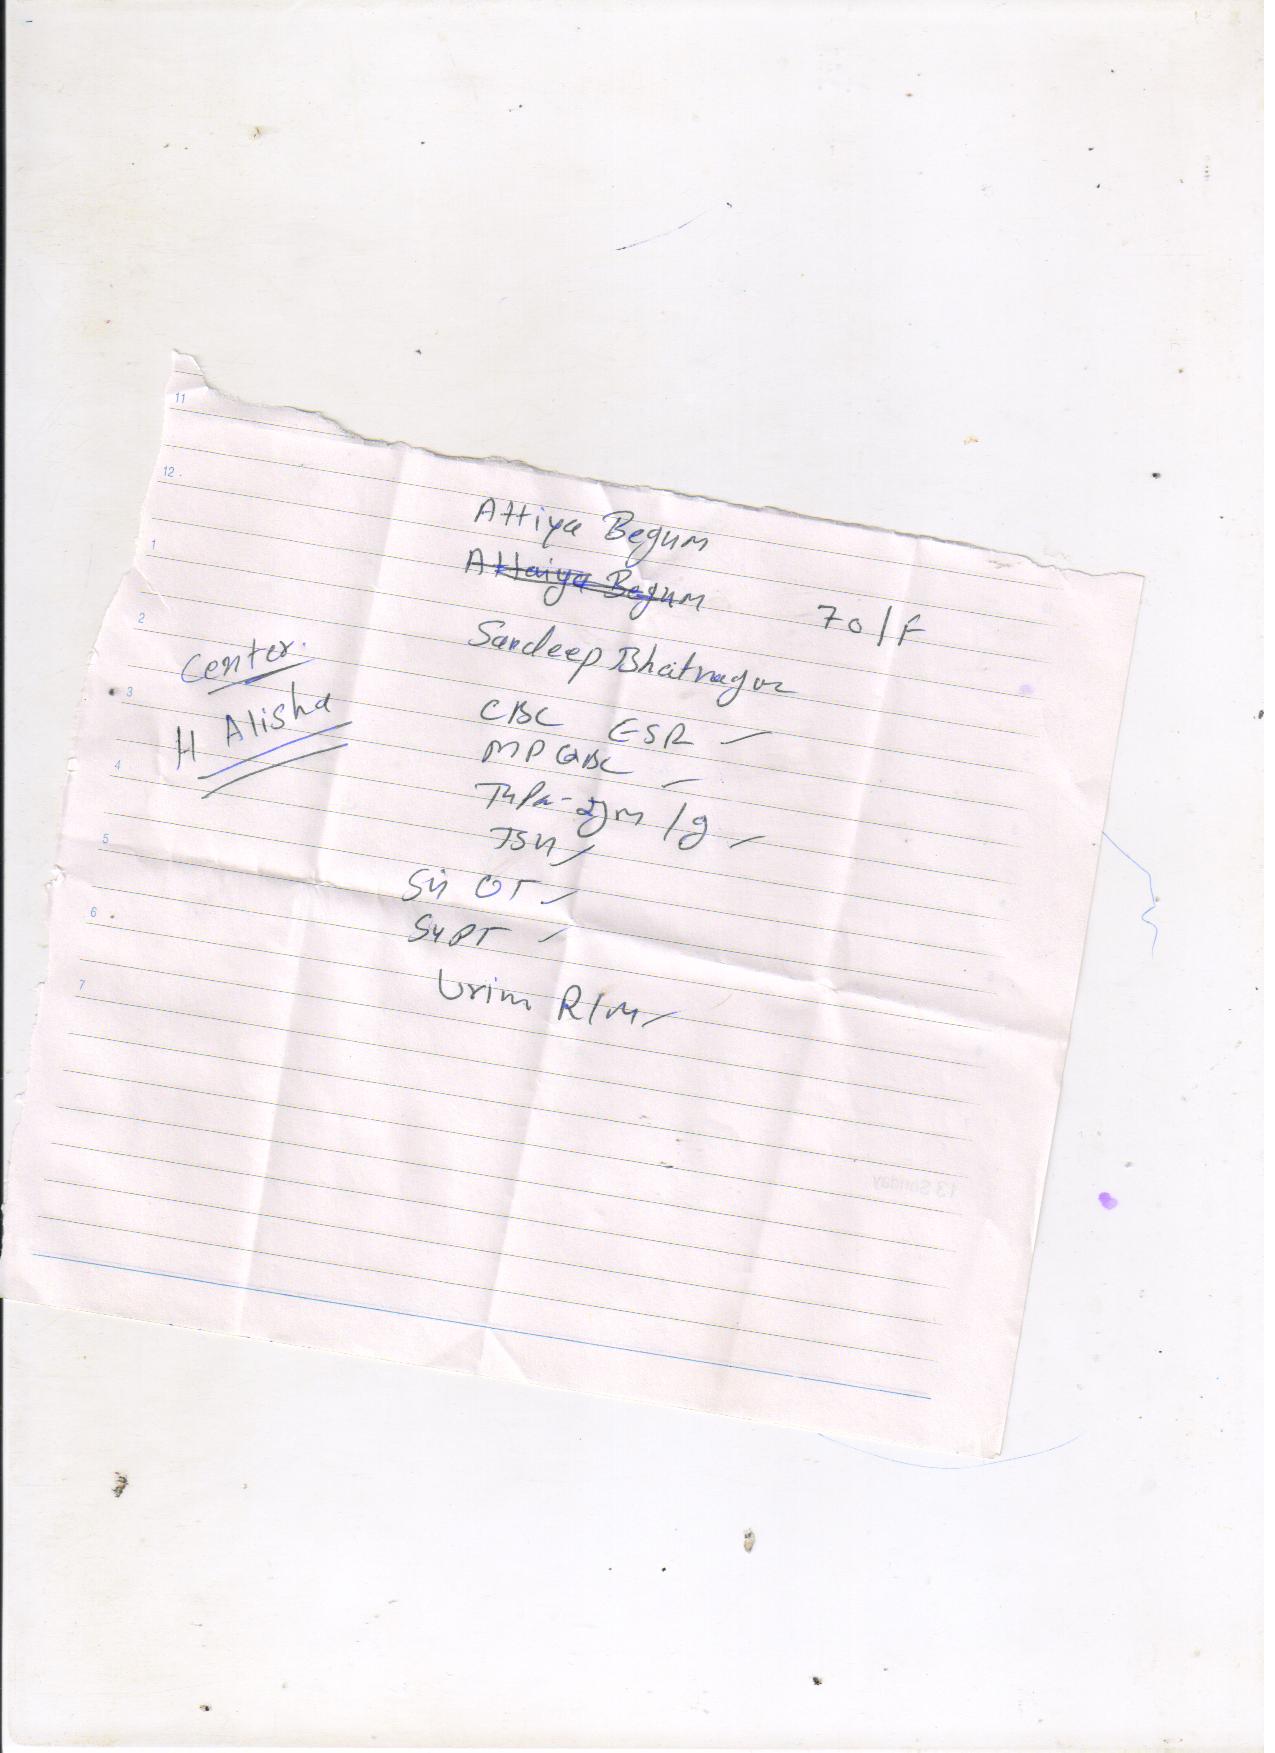 11
12
Attiya Begum
1
Attaiya Begum
70/F
2
Sandeep Bhatnagar
Center.
3
H Alisha
CBC ESR
MP QBC
4
IgM / g
TSH
5
SG OT
6
SGPT
7
Urine R/M
13 Sunday